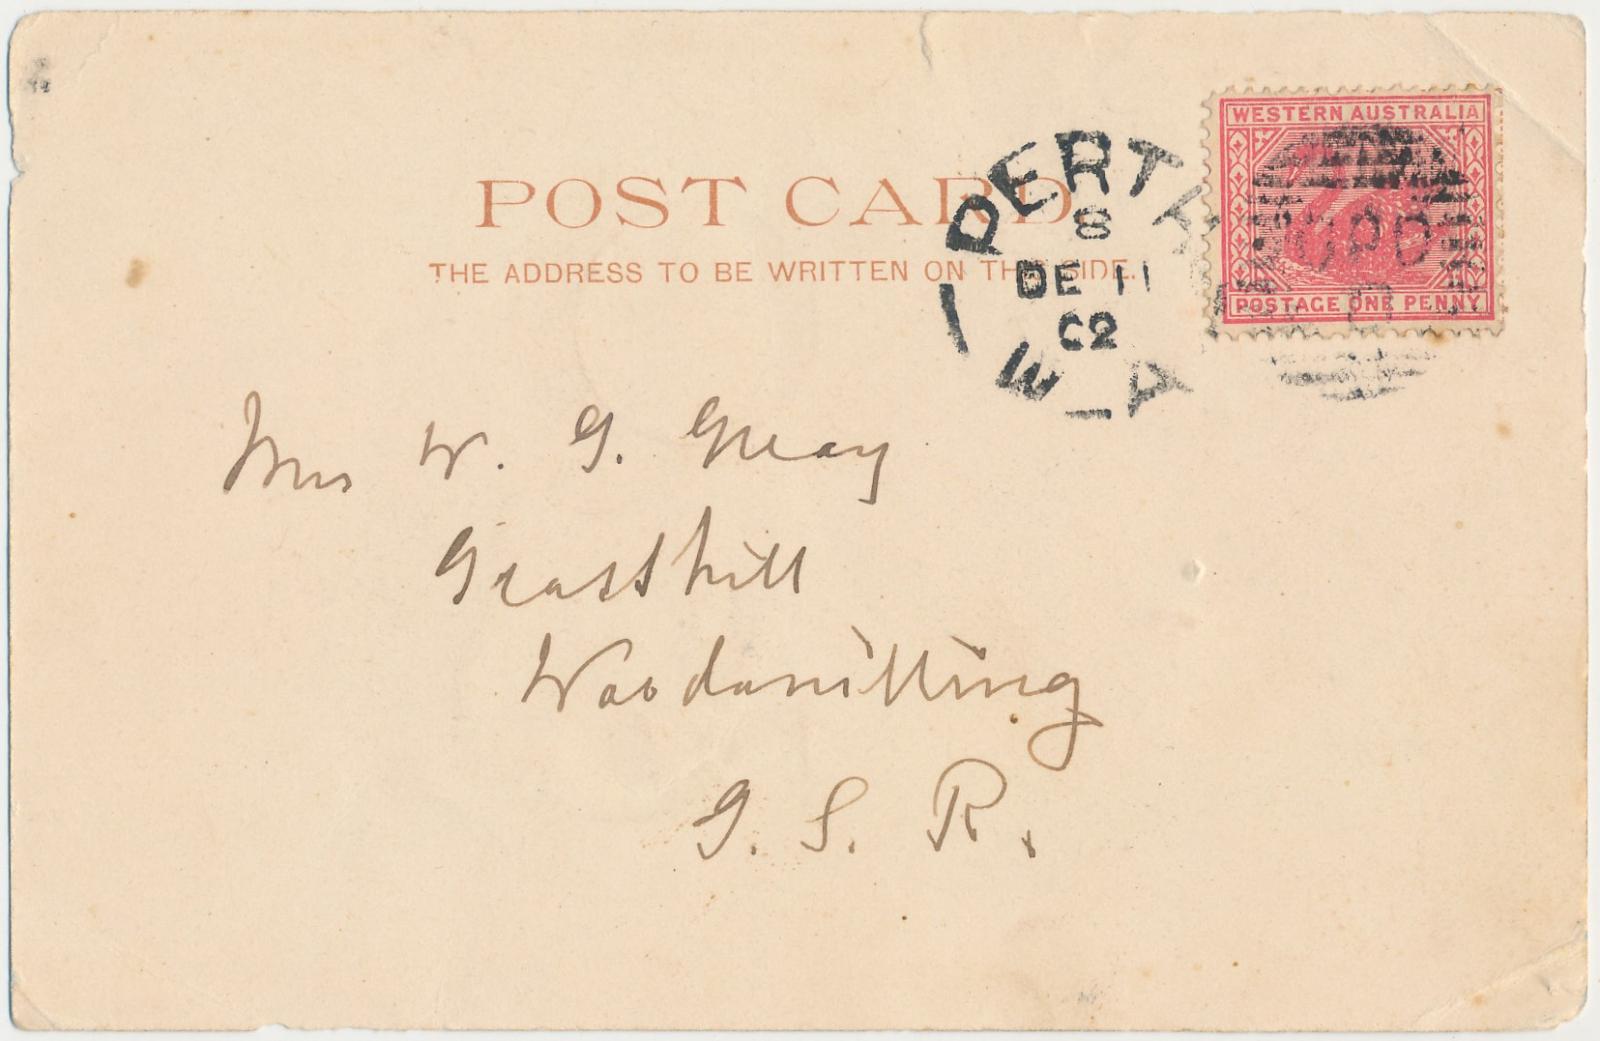 POST CARD.
THE ADDRESS TO BE WRITTEN ON THIS SIDE.
PERTH
8
DE 11
02
WESTERN AUSTRALIA
GPO
POSTAGE ONE PENNY
Mrs W. G. Gray
Grasshill
Woodanilling
G. S. R.